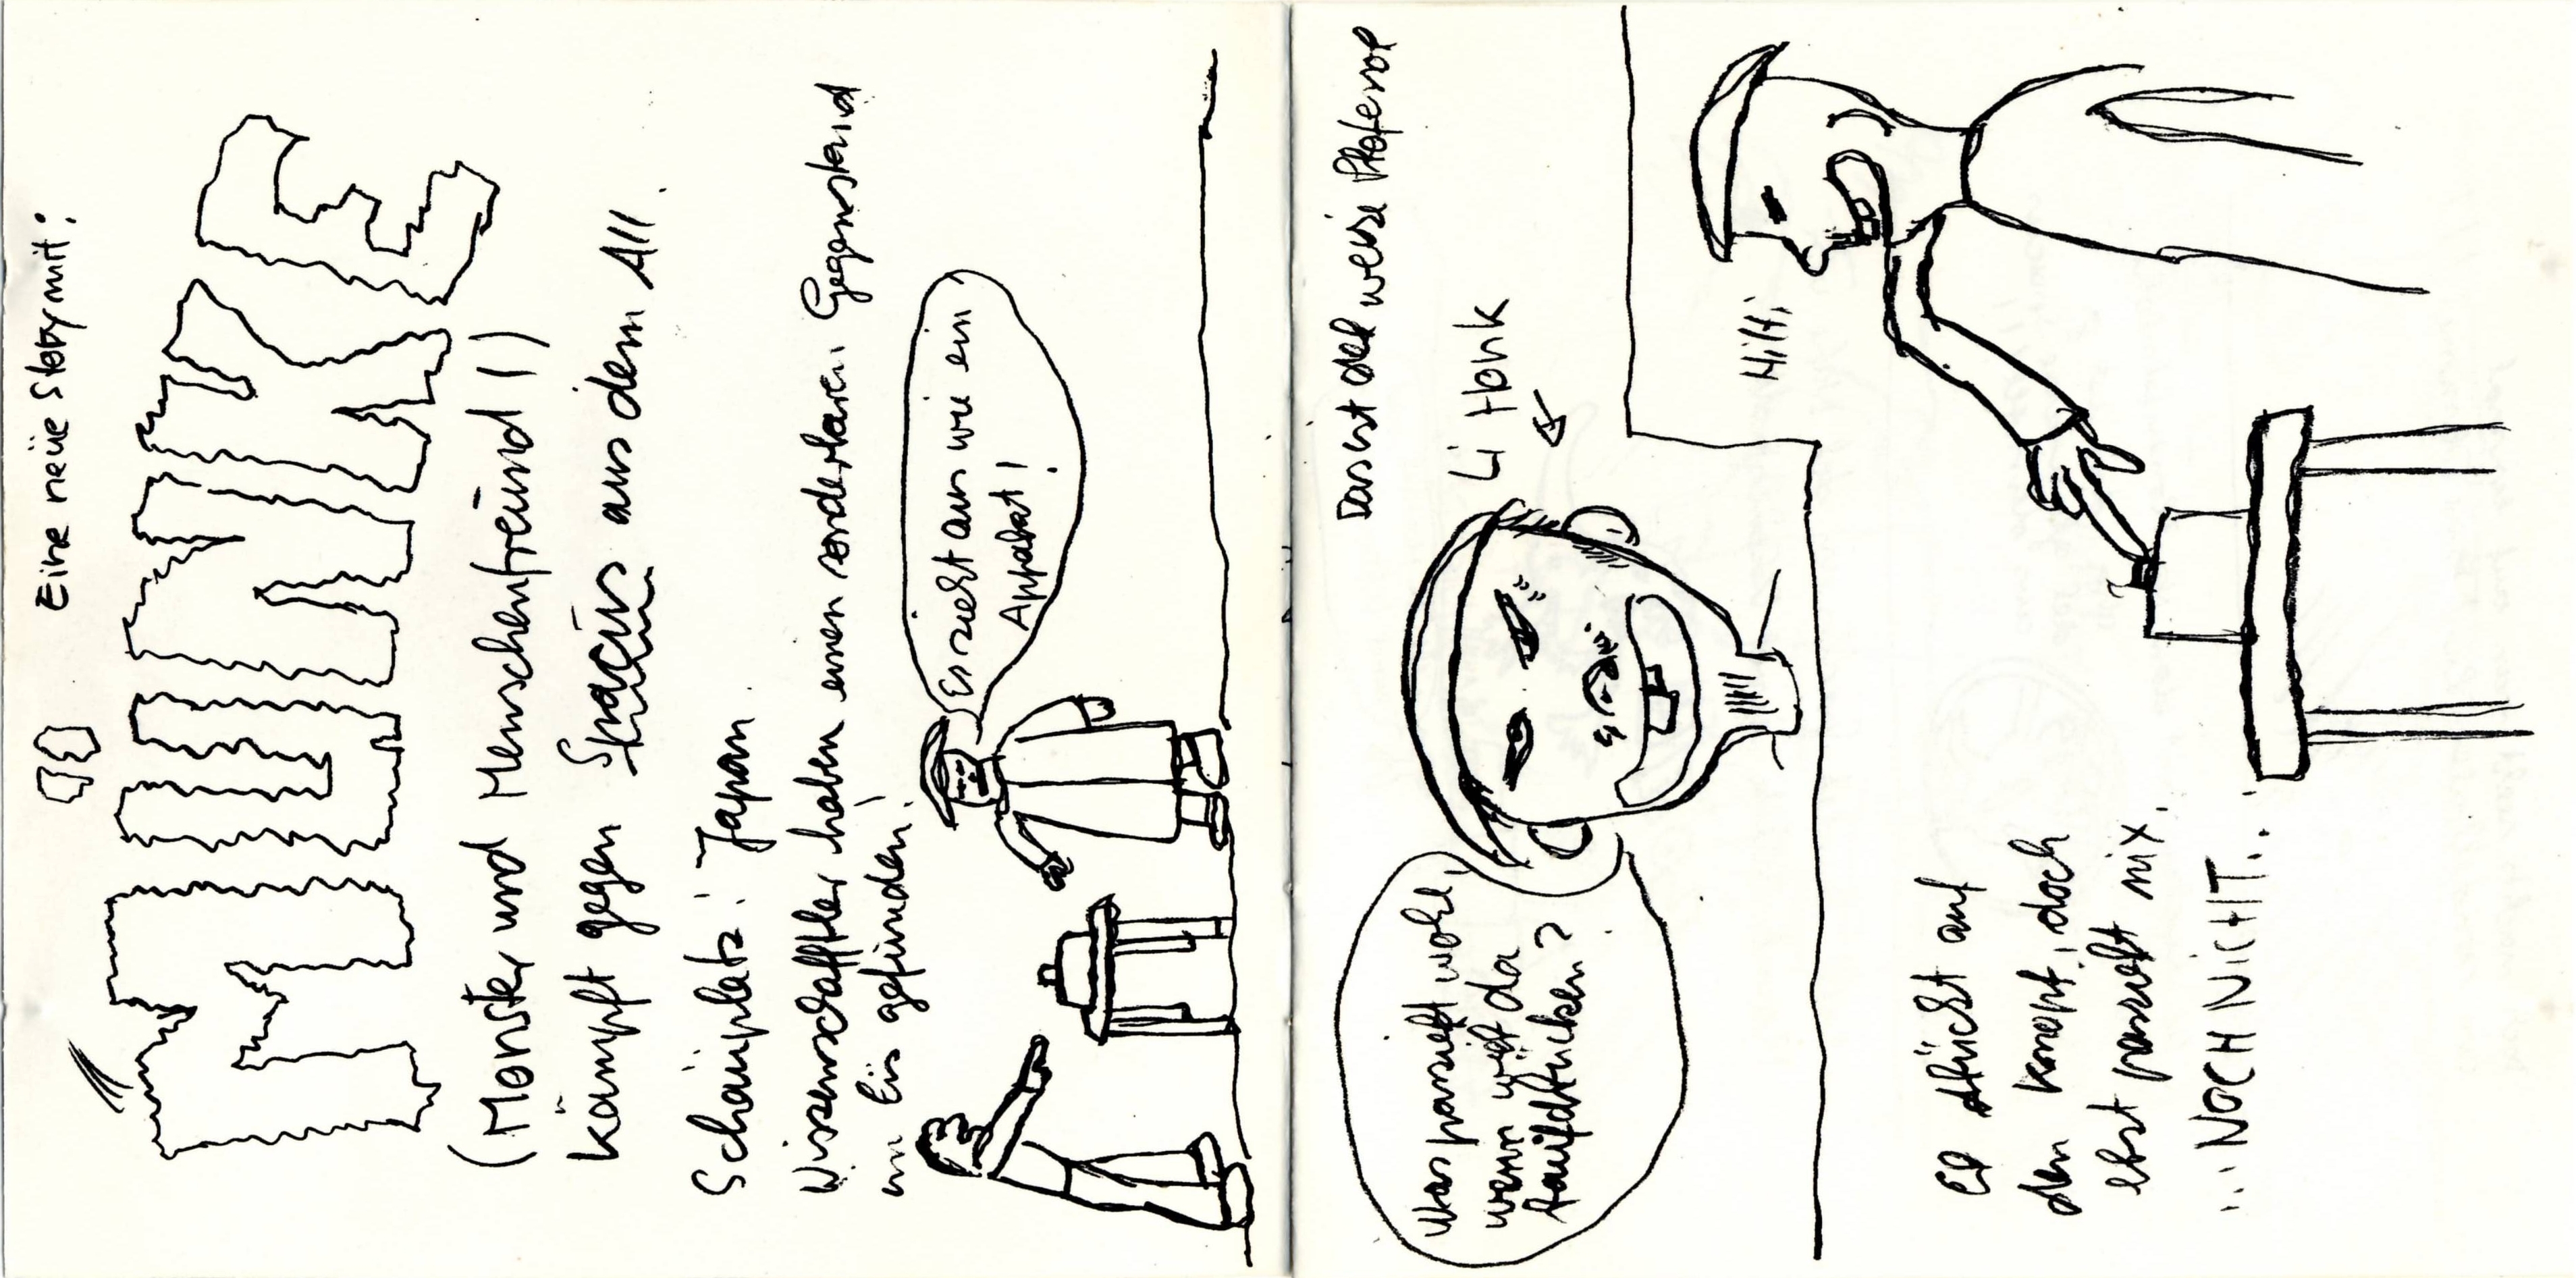 Eine neue Story mit:
MUNKE
(Monster und Menschenfreund!!)
kämpft gegen Spacius aus dem All.
Schauplatz: Japan.
Wissenschaftler haben einen sonderbaren Gegenstand
im Eis gefunden!
Es sieht aus wie ein
Apparat!
Das ist der weise Professor
Li Honk
Was passiert wohl,
wenn wir da
draufdrücken?
Hihi,
Er drückt auf
den Knopf, doch
erst passiert nix.
...NOCH NICHT...